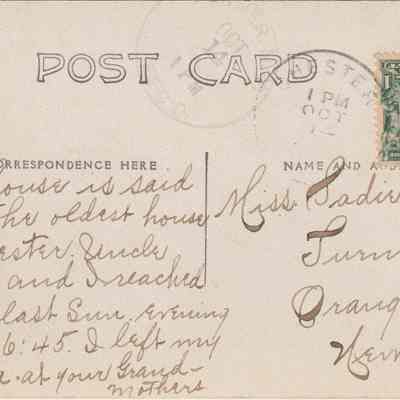 POST CARD
1 PM
OCT
OCT
14
1 PM
CORRESPONDENCE HERE
NAME AND ADD
house is said
the oldest house
ester. Uncle
and I reached
last Sun. evening
6:45. I left my
at your Grand-
mothers
Miss. Sadie
Turn
Orang
New